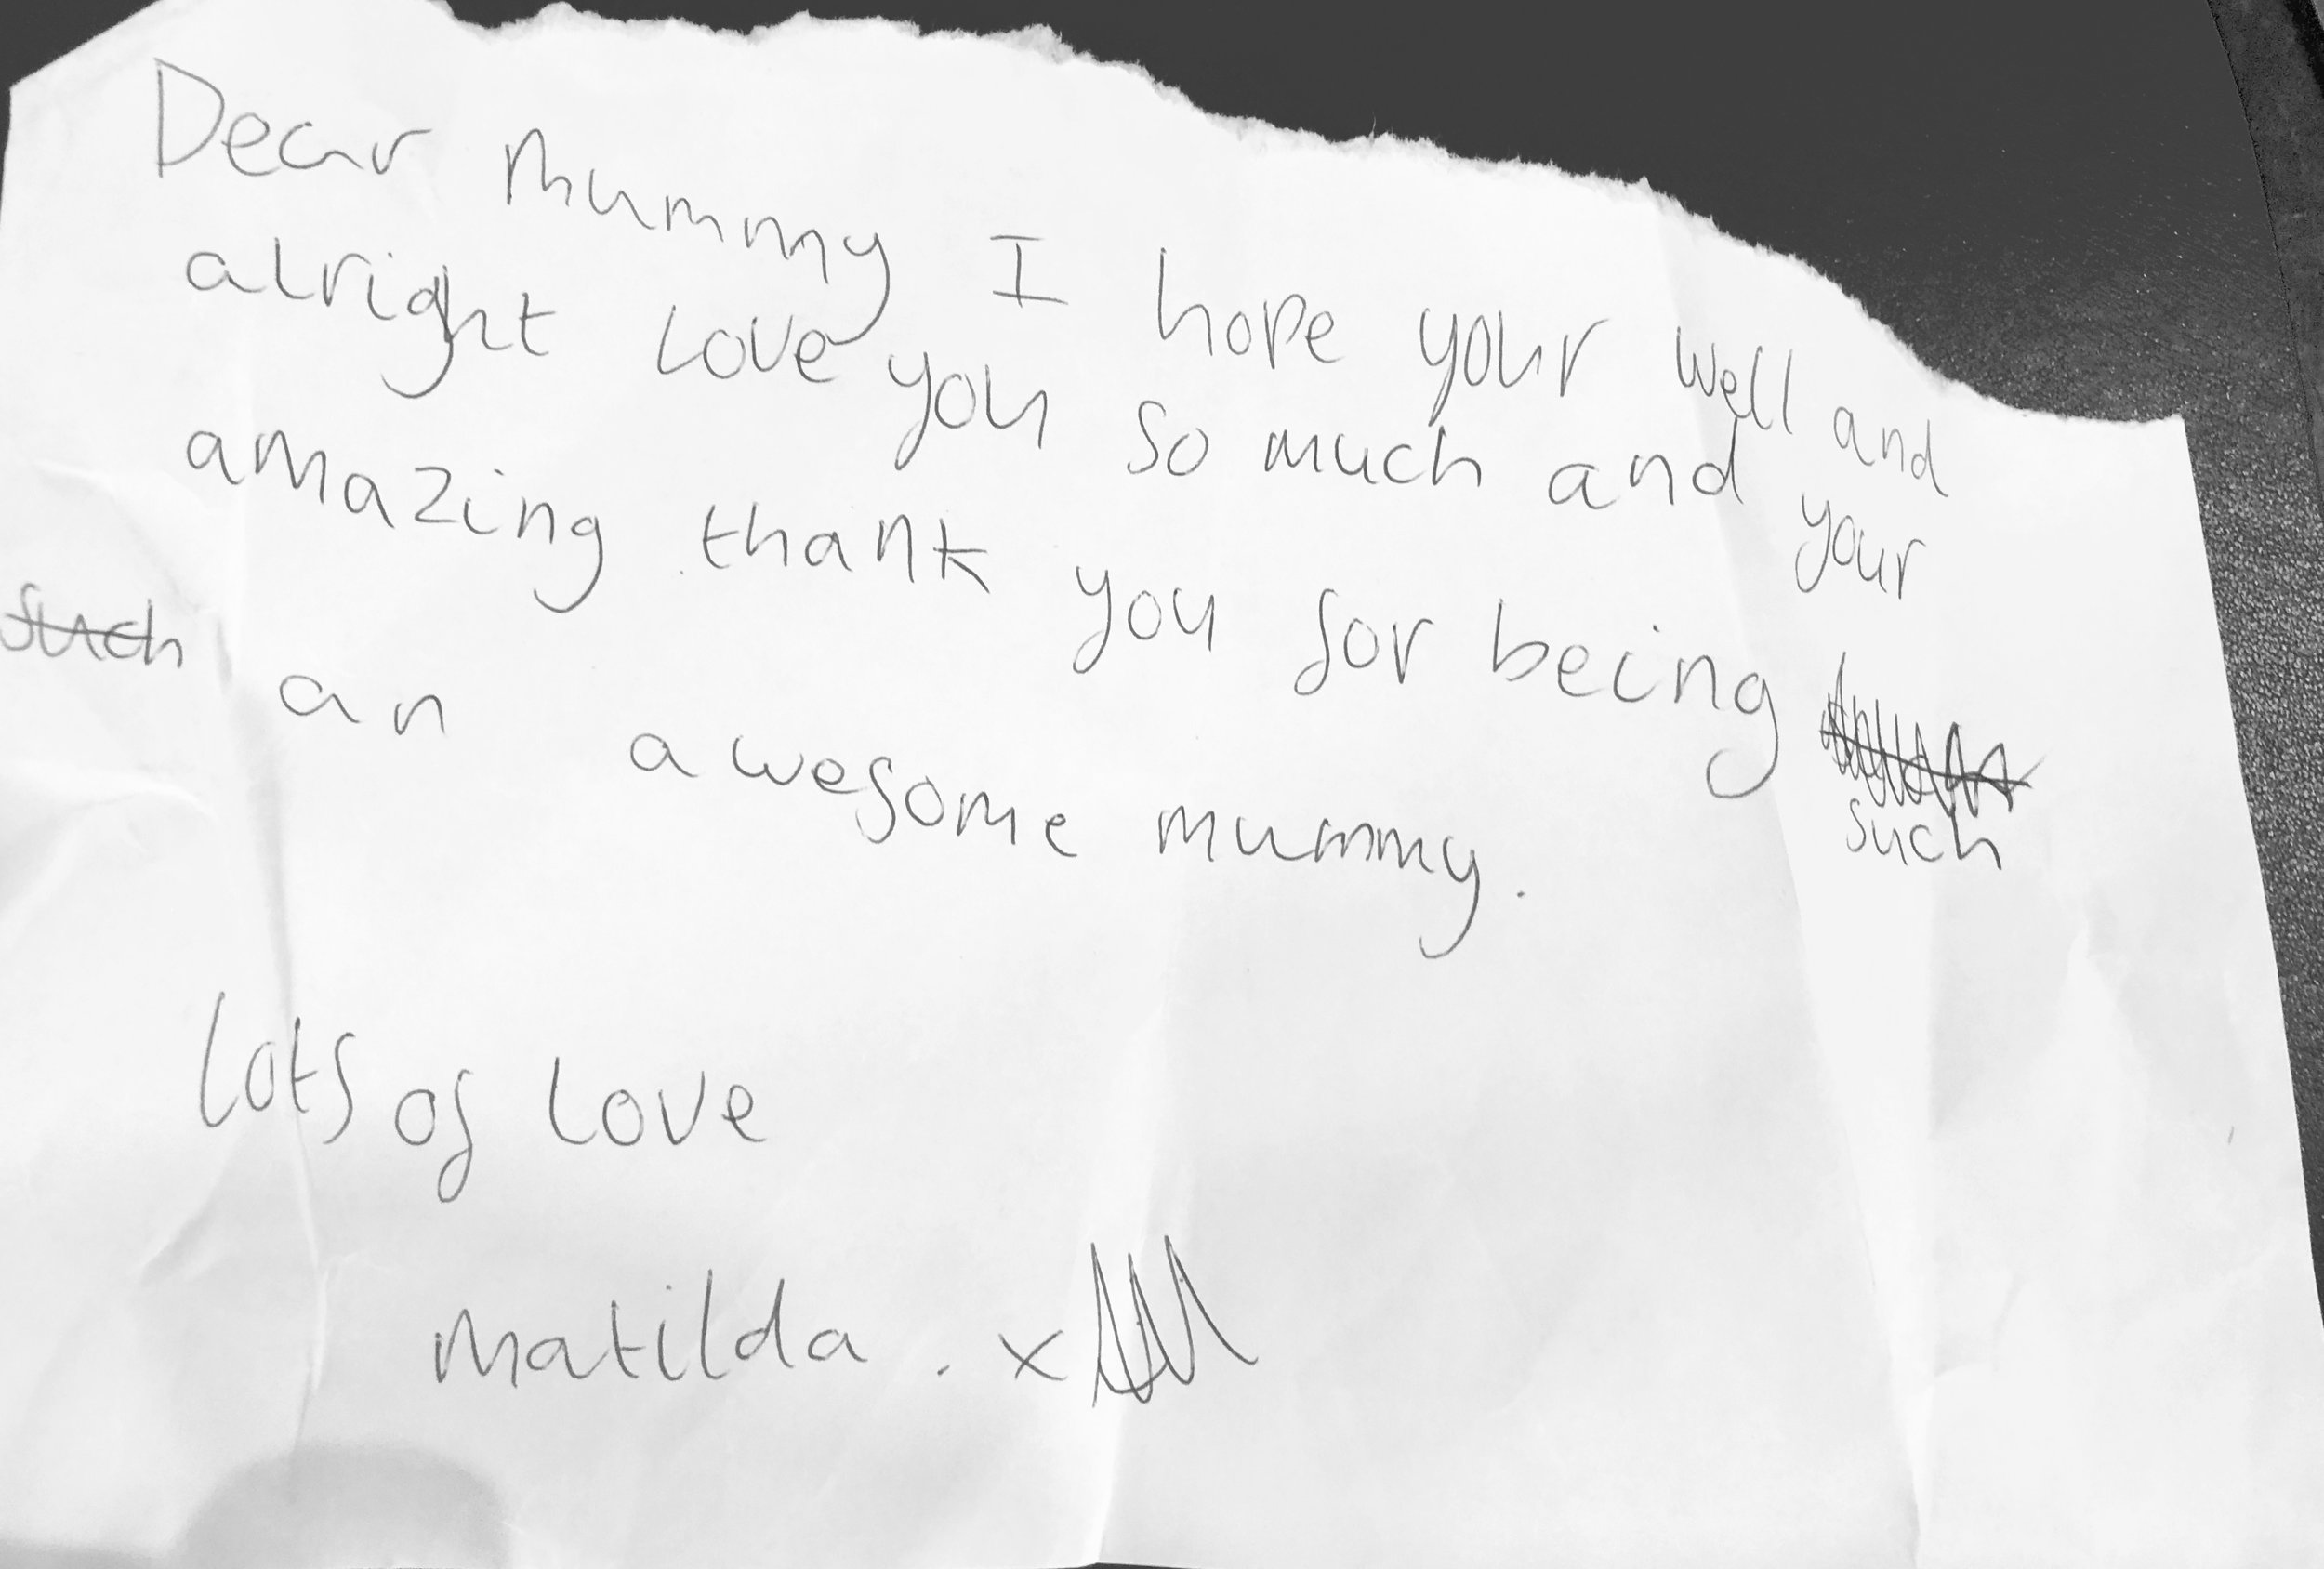 Dear Mummy I hope your well and
alright love you so much and your
amazing thank you for being
such
such an awesome mummy.
lots of love
Matilda . x